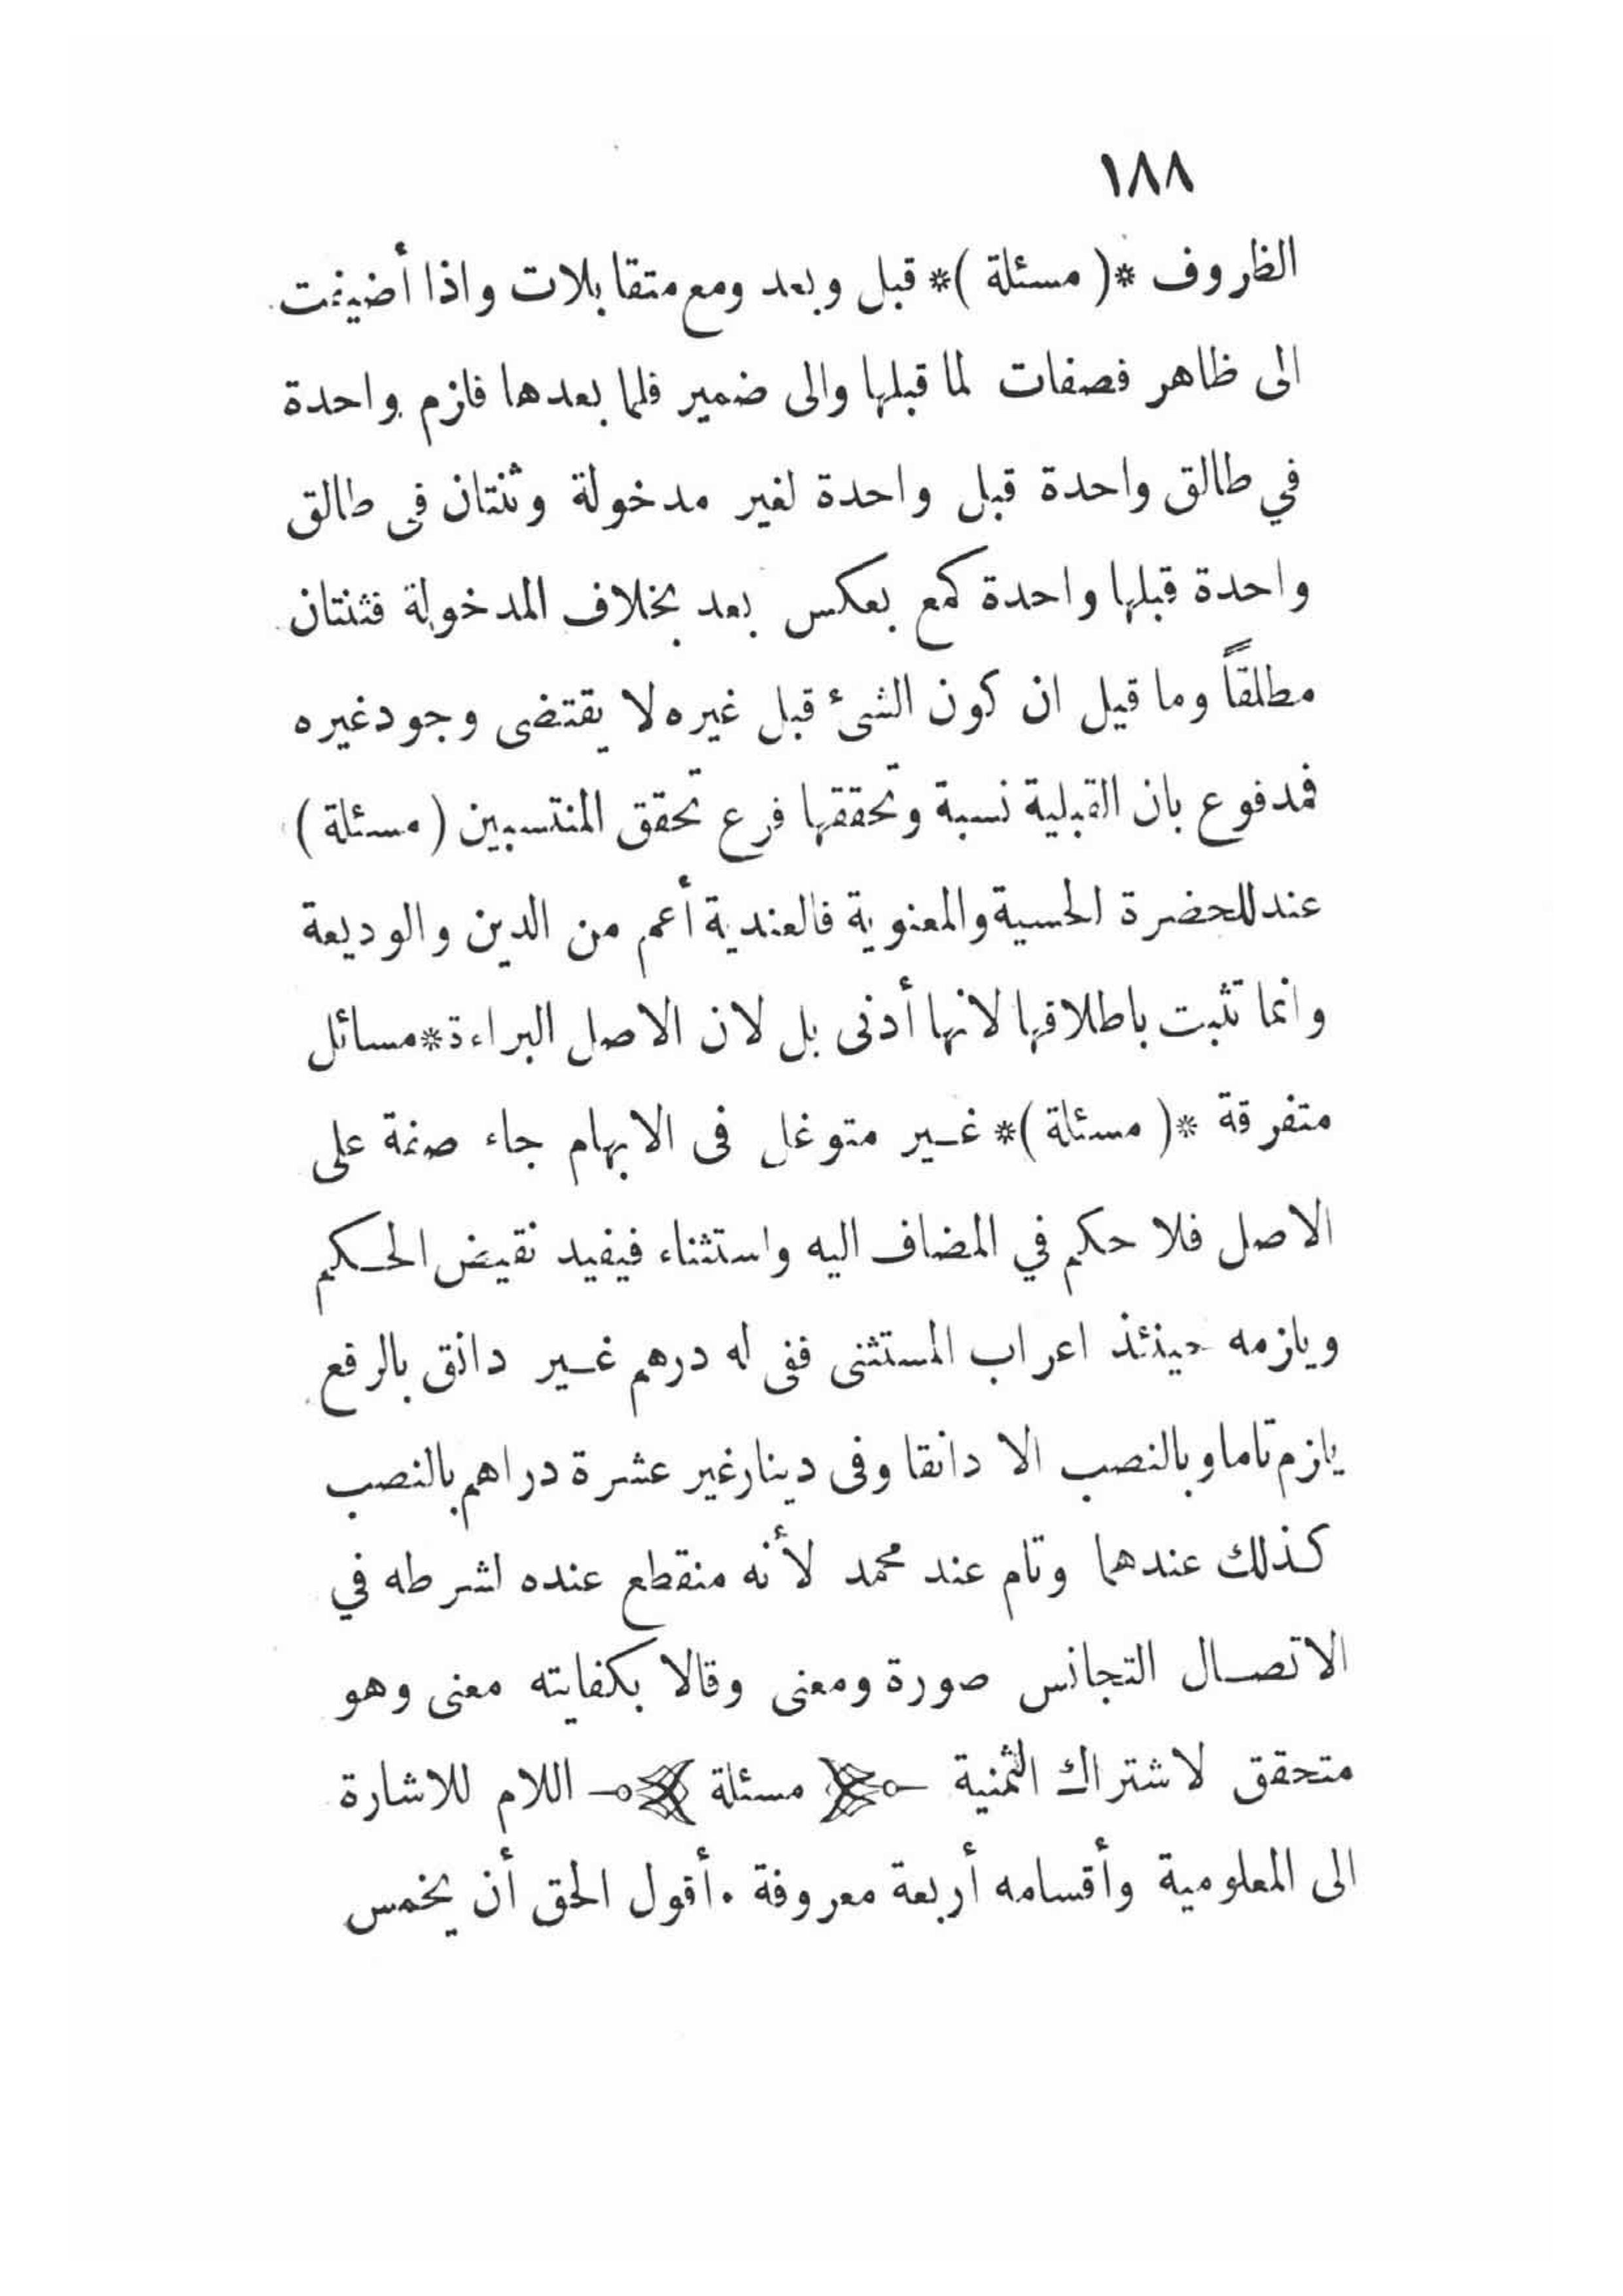 ١٨٨
الظروف *( مسئلة )* قبل وبعد ومع متقابلات واذا أضيفت
الى ظاهر فصفات لما قبلها والى ضمير فلما بعدها فلزم واحدة
في طالق واحدة قبل واحدة لغير مدخولة وثنتان فى طالق
واحدة قبلها واحدة كمع بعكس بعد بخلاف المدخولة فثنتان
مطلقاً وما قيل ان كون الشىء قبل غيره لا يقتضى وجود غيره
فمدفوع بان القبلية نسبة وتحققها فرع تحقق المنتسبين ( مسئلة )
عند للحضرة الحسية والمعنوية فالعندية أعم من الدين والوديعة
وانما تثبت باطلاقها لانها أدنى بل لان الاصل البراءة * مسائل
متفرقة *( مسئلة )* غير متوغل فى الابهام جاء صفة على
الاصل فلا حكم في المضاف اليه واستثناء فيفيد نقيض الحكم
ويلزمه حينئذ اعراب المستثنى ففى له درهم غير دانق بالرفع
يلزم تاما وبالنصب الا دانقا وفى دينار غير عشرة دراهم بالنصب
كذلك عندهما وتام عند محمد لأنه منقطع عنده لشرطه في
الاتصال التجانس صورة ومعنى وقالا بكفايته معنى وهو
متحقق لاشتراك الثمنية مسئلة اللام للاشارة
الى المعلومية وأقسامه أربعة معروفة . أقول الحق أن يخمس